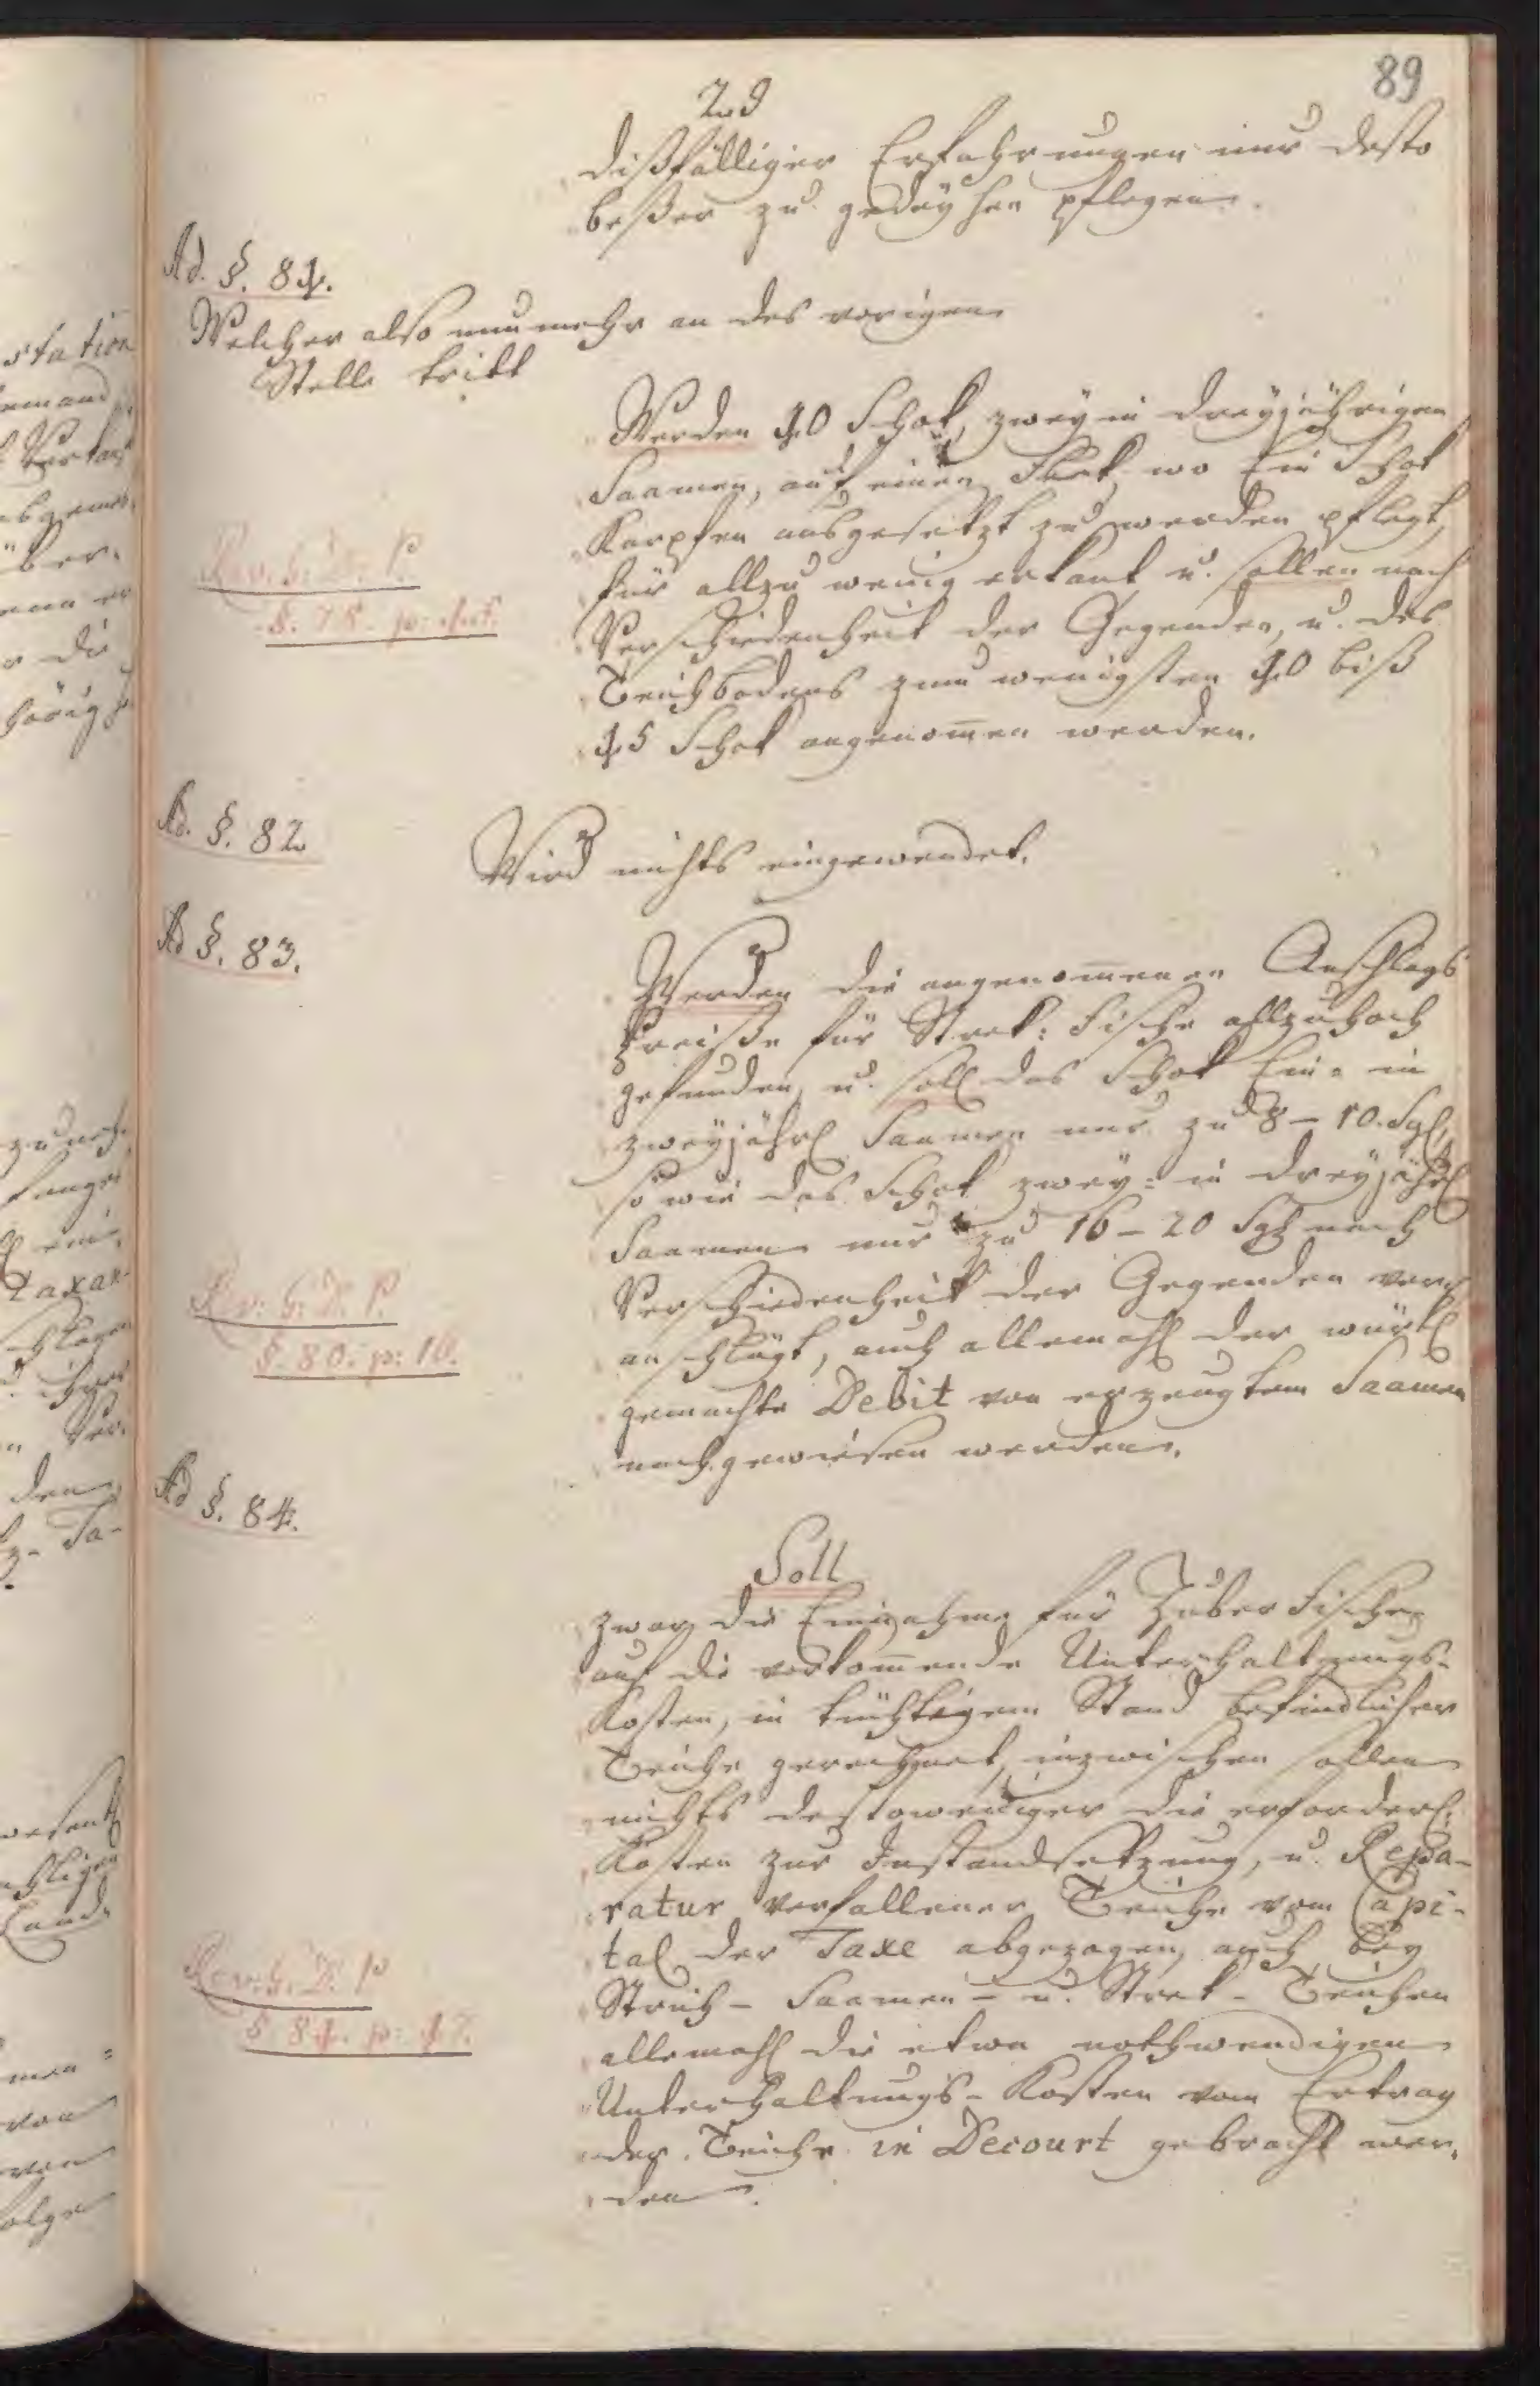 89
und
dißfälliger Erfahrungen nur desto
beßer zu gedeyhen pflegen.
Ad. §. 81.
Welcher also nunmehr an des vorigen
Stelle tritt
Werden 10 Schok, zwey in dreyjährigen
Saamen, auf einen Flek, wo Ein Schok
Karpfen ausgesetzt zu werden pflegt,
für allzu wenig erkant, u. sollen nach
Verschiedenheit der Gegenden, u. des
Teichbodens zum wenigsten 10 biß
15 Schok angenom̄en werden.
Rev: h: T. P.
§. 78. p:
Ad. §. 82
Wird nichts eingewendet.
Ad §. 83.
Werden die angenom̄enen Anschlags
Preiße für Strek: Fische allzuhoch
gefunden, u. soll das Schok Ein- in
zweyjährl Saamen nur zu 8 – 10. Sgl,
so wie das Schok zwey: in dreyjährl
Saamen nur zu 16 – 20 Sgl nach
Verschiedenheit der Gegenden ver-
anschlagt, auch allemahl der würkl
gemachte Debit von erzeugtem Saamen
nachgewiesen werden.
Rev: h: T. P.
§. 80. p: 16.
Ad §. 84.
Soll
zwar die Einnahme für Zuber Fische
auf die vorkom̄ende Unterhaltungs-
Kosten, in tüchtigem Stand befindlicher
Teiche gerechnet, inzwischen sollen
nichts destoweniger die erforderl:
Kosten zur Instandsetzung, u. Repa-
ratur verfallener Teiche vom Capi-
tal der Taxe abgezogen, auch bey
Strich- Saamen- u. Strek- Teichen
allemahl die etwa nothwendigen
Unterhaltungs- Kosten vom Ertrag
der Teiche in Decourt gebracht wer-
den.
Rev: h. T. P
§. 81. p: 17.